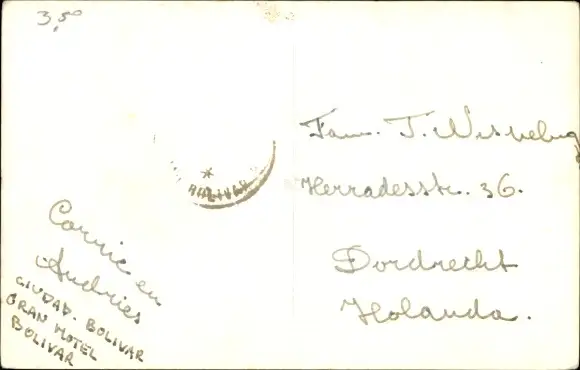 3,50
Fam. T.
Herradesstr. 36.
Dordrecht
Holanda.
* BOLIVAR
Corrie en
Andries
CIUDAD. BOLIVAR
GRAN HOTEL
BOLIVAR